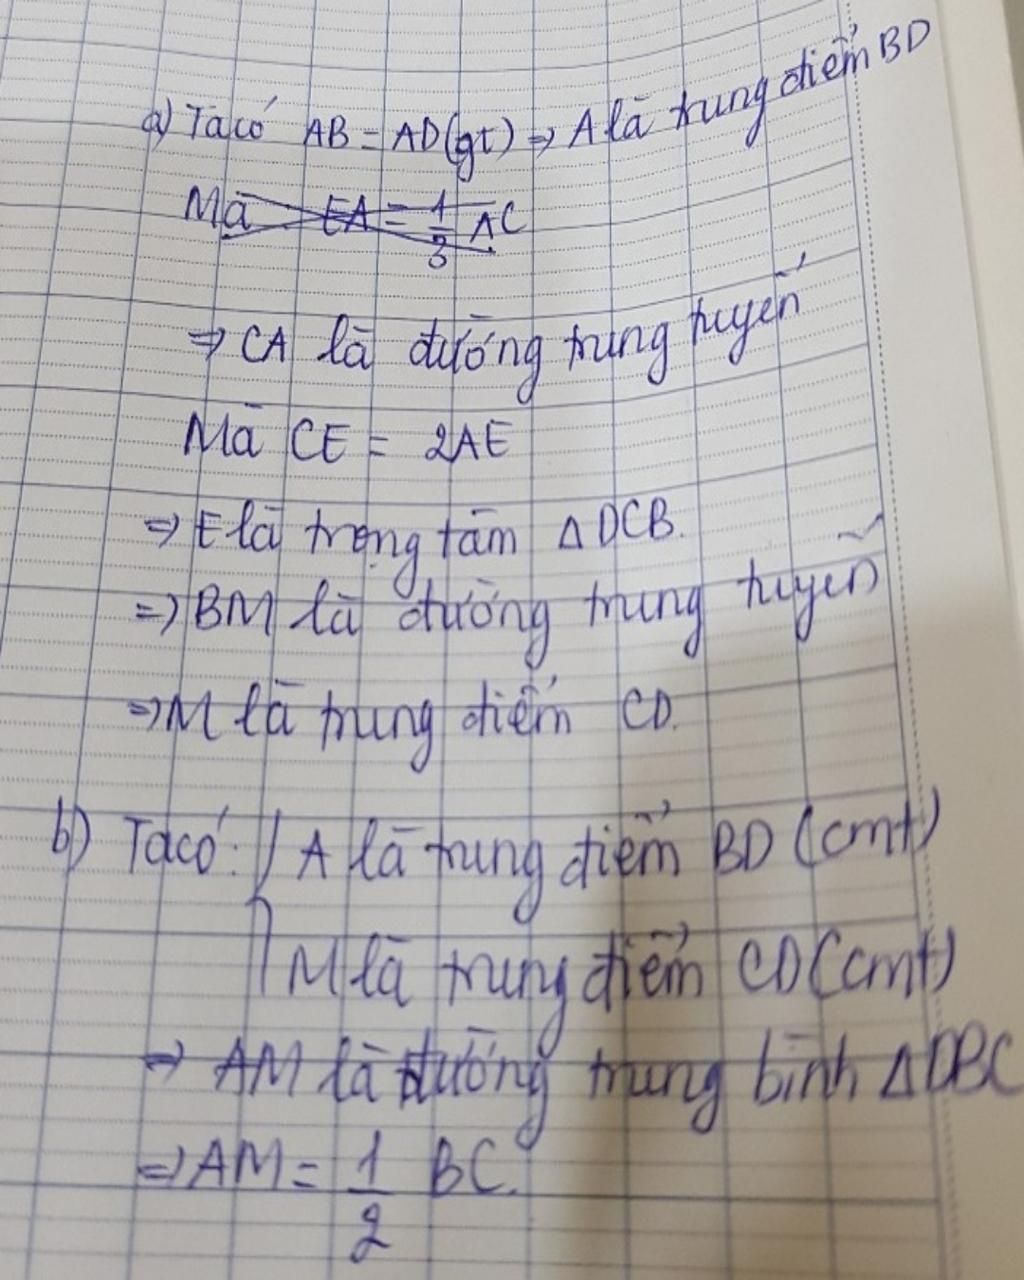 a) Ta có AB = AD (gt) ⇒ A là trung điểm BD
Mà EA = 1/3 AC
⇒ CA là đường trung tuyến
Mà CE = 2AE
⇒ E là trọng tâm Δ DCB.
⇒ BM là đường trung tuyến
⇒ M là trung điểm CD.
b) Ta có: { A là trung điểm BD (cmt)
M là trung điểm CD (cmt)
⇒ AM là đường trung bình Δ DBC
⇒ AM = 1/2 BC.